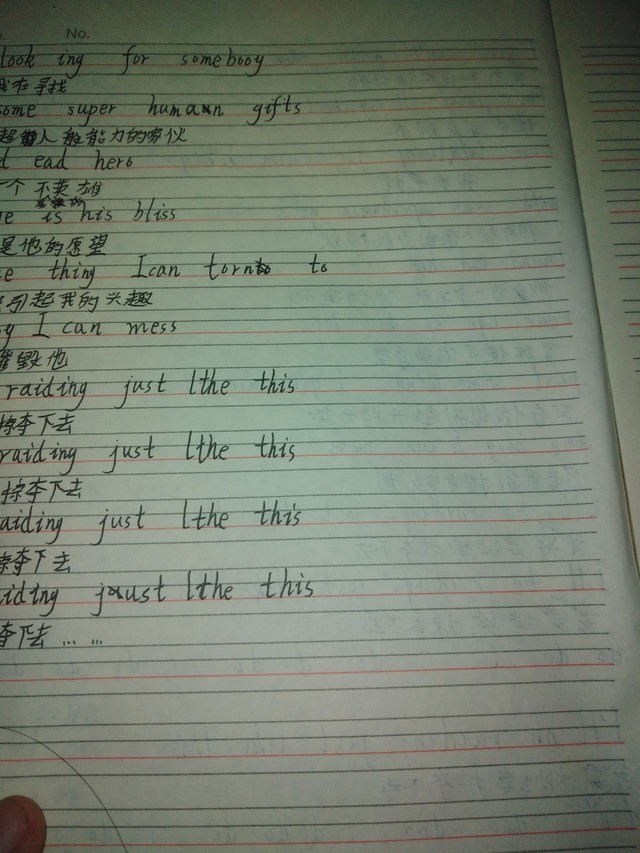 No.
look ing for somebooy
我在寻找
some super humaun gifts
超人般能力的家伙
ead hero
个 不英雄
is his bliss
是他的愿望
thing Ican torn to
引起我的兴趣
I can mess
摧毁他
raiding just lthe this
掠夺下去
raiding just lthe this
掠夺下去
raiding just lthe this
掠夺下去
iding just lthe this
夺下去 … …